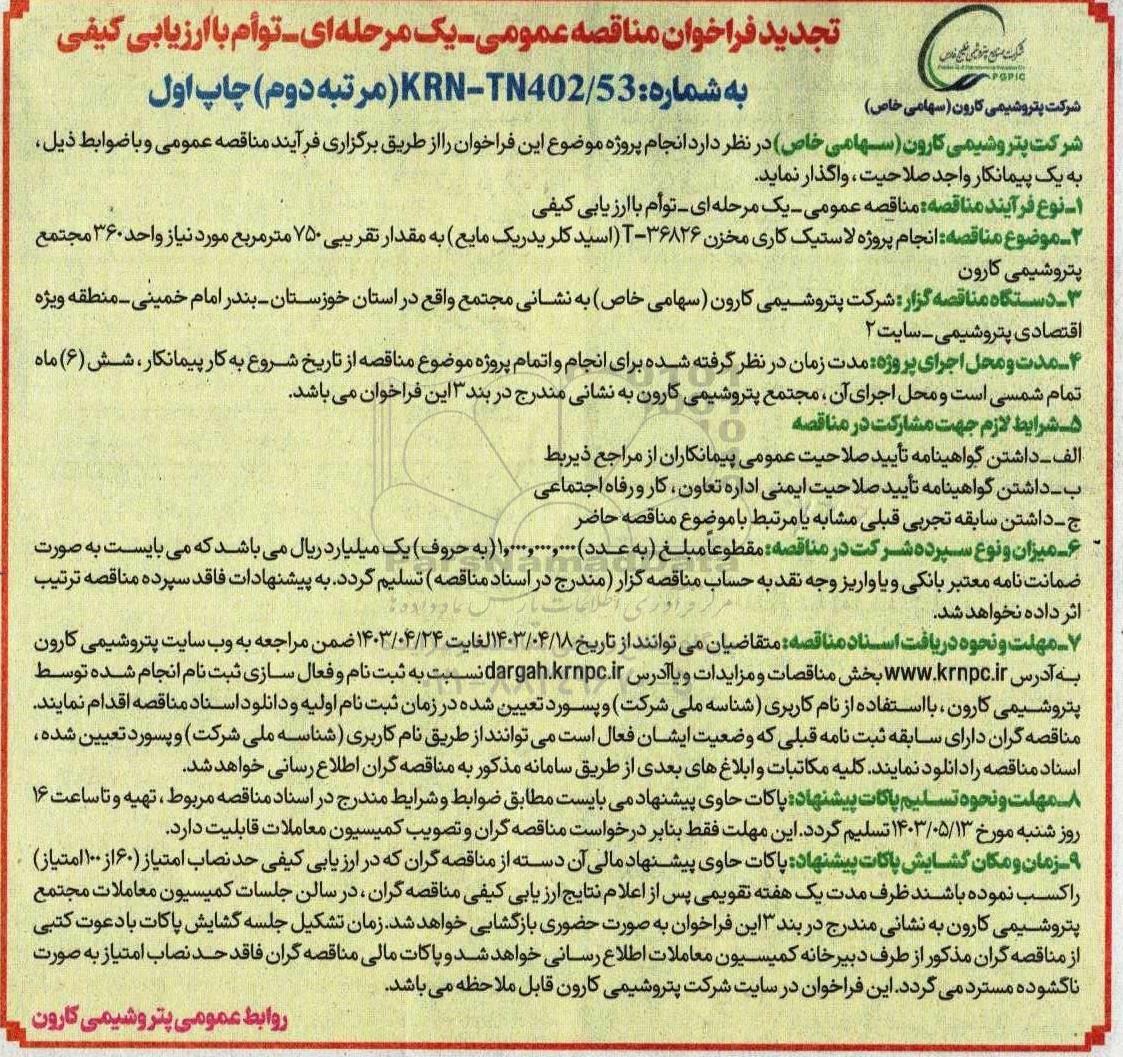 تجدید فراخوان مناقصه عمومی_یک مرحله‌ای_توأم با ارزیابی کیفی
به شماره: KRN-TN402/53 (مرتبه دوم) چاپ اول
شرکت صنایع پتروشیمی خلیج فارس
PGPIC
شرکت پتروشیمی کارون (سهامی خاص)
شرکت پتروشیمی کارون (سهامی خاص) در نظر دارد انجام پروژه موضوع این فراخوان را از طریق برگزاری فرآیند مناقصه عمومی و با ضوابط ذیل،
به یک پیمانکار واجد صلاحیت، واگذار نماید.
۱_نوع فرآیند مناقصه: مناقصه عمومی _ یک مرحله ای _ توأم با ارزیابی کیفی
۲_موضوع مناقصه: انجام پروژه لاستیک کاری مخزن T-۳۶۸۲۶ (اسید کلریدریک مایع) به مقدار تقریبی ۷۵۰ مترمربع مورد نیاز واحد ۳۶۰ مجتمع
پتروشیمی کارون
۳_دستگاه مناقصه گزار: شرکت پتروشیمی کارون (سهامی خاص) به نشانی مجتمع واقع در استان خوزستان _ بندر امام خمینی _ منطقه ویژه
اقتصادی پتروشیمی _ سایت ۲
۴_مدت و محل اجرای پروژه: مدت زمان در نظر گرفته شده برای انجام و اتمام پروژه موضوع مناقصه از تاریخ شروع به کار پیمانکار، شش (۶) ماه
تمام شمسی است و محل اجرای آن، مجتمع پتروشیمی کارون به نشانی مندرج در بند ۳ این فراخوان می باشد.
۵_شرایط لازم جهت مشارکت در مناقصه
الف _ داشتن گواهینامه تأیید صلاحیت عمومی پیمانکاران از مراجع ذیربط
ب _ داشتن گواهینامه تأیید صلاحیت ایمنی اداره تعاون، کار و رفاه اجتماعی
ج _ داشتن سابقه تجربی قبلی مشابه یا مرتبط با موضوع مناقصه حاضر
۶_میزان و نوع سپرده شرکت در مناقصه: مقطوعاً مبلغ (به عدد) ۱,۰۰۰,۰۰۰,۰۰۰ (به حروف) یک میلیارد ریال می باشد که می بایست به صورت
ضمانت نامه معتبر بانکی و یا واریز وجه نقد به حساب مناقصه گزار (مندرج در اسناد مناقصه) تسلیم گردد. به پیشنهادات فاقد سپرده مناقصه ترتیب
اثر داده نخواهد شد.
۷_مهلت و نحوه دریافت اسناد مناقصه: متقاضیان می توانند از تاریخ ۱۴۰۳/۰۴/۱۸ لغایت ۱۴۰۳/۰۴/۲۴ ضمن مراجعه به وب سایت پتروشیمی کارون
به آدرس www.krnpc.ir بخش مناقصات و مزایدات و یا آدرس dargah.krnpc.ir نسبت به ثبت نام و فعال سازی ثبت نام انجام شده توسط
پتروشیمی کارون، با استفاده از نام کاربری (شناسه ملی شرکت) و پسورد تعیین شده در زمان ثبت نام اولیه و دانلود اسناد مناقصه اقدام نمایند.
مناقصه گران دارای سابقه ثبت نامه قبلی که وضعیت ایشان فعال است می توانند از طریق نام کاربری (شناسه ملی شرکت) و پسورد تعیین شده،
اسناد مناقصه را دانلود نمایند. کلیه مکاتبات و ابلاغ های بعدی از طریق سامانه مذکور به مناقصه گران اطلاع رسانی خواهد شد.
۸_مهلت و نحوه تسلیم پاکات پیشنهاد: پاکات حاوی پیشنهاد می بایست مطابق ضوابط و شرایط مندرج در اسناد مناقصه مربوط، تهیه و تا ساعت ۱۶
روز شنبه مورخ ۱۴۰۳/۰۵/۱۳ تسلیم گردد. این مهلت فقط بنابر درخواست مناقصه گران و تصویب کمیسیون معاملات قابلیت دارد.
۹_زمان و مکان گشایش پاکات پیشنهاد: پاکات حاوی پیشنهاد مالی آن دسته از مناقصه گران که در ارزیابی کیفی حد نصاب امتیاز (۶۰ از ۱۰۰ امتیاز)
را کسب نموده باشند ظرف مدت یک هفته تقویمی پس از اعلام نتایج ارزیابی کیفی مناقصه گران، در سالن جلسات کمیسیون معاملات مجتمع
پتروشیمی کارون به نشانی مندرج در بند ۳ این فراخوان به صورت حضوری بازگشایی خواهد شد. زمان تشکیل جلسه گشایش پاکات با دعوت کتبی
از مناقصه گران مذکور از طرف دبیرخانه کمیسیون معاملات اطلاع رسانی خواهد شد و پاکات مالی مناقصه گران فاقد حد نصاب امتیاز به صورت
ناگشوده مسترد می گردد. این فراخوان در سایت شرکت پتروشیمی کارون قابل ملاحظه می باشد.
روابط عمومی پتروشیمی کارون